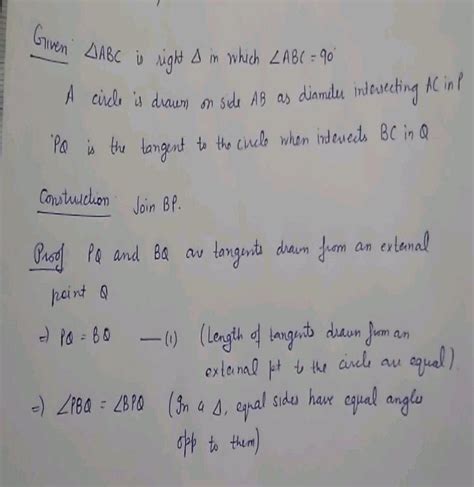 Given: ΔABC is right Δ in which ∠ABC = 90°
A circle is drawn on side AB as diameter intersecting AC in P
PQ is the tangent to the circle when intersects BC in Q
Construction: Join BP.
Proof PQ and BQ are tangents drawn from an external
point Q
⇒ PQ = BQ —(1) (Length of tangents drawn from an
external pt to the circle are equal)
⇒ ∠PBQ = ∠BPQ (In a Δ, equal sides have equal angles
opp to them)